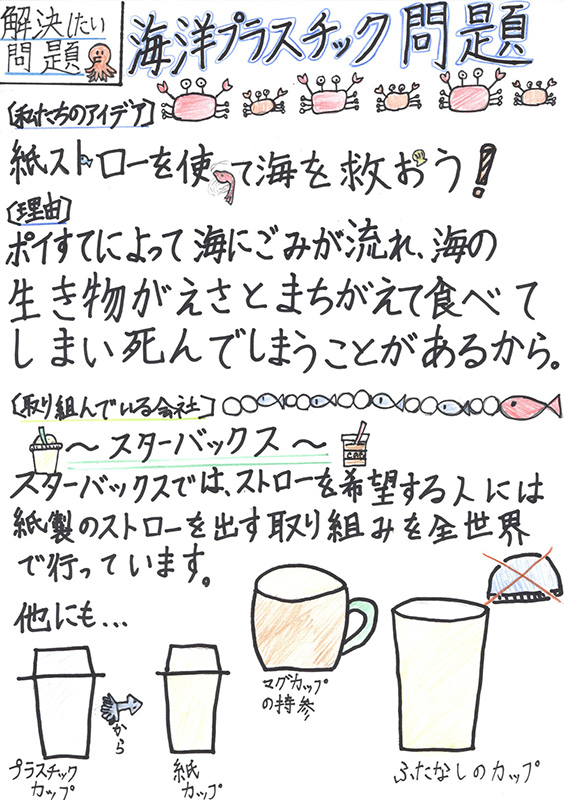 解決したい
問題
海洋プラスチック問題
〔私たちのアイデア〕
紙ストローを使って海を救おう!
〔理由〕
ポイすてによって海にごみが流れ、海の
生き物がえさとまちがえて食べて
しまい死んでしまうことがあるから。
〔取り組んでいる会社〕
〜スターバックス〜
スターバックスでは、ストローを希望する人には
紙製のストローを出す取り組みを全世界
で行っています。
他にも...
マグカップ
の持参
から
プラスチック
カップ
紙
カップ
ふたなしのカップ